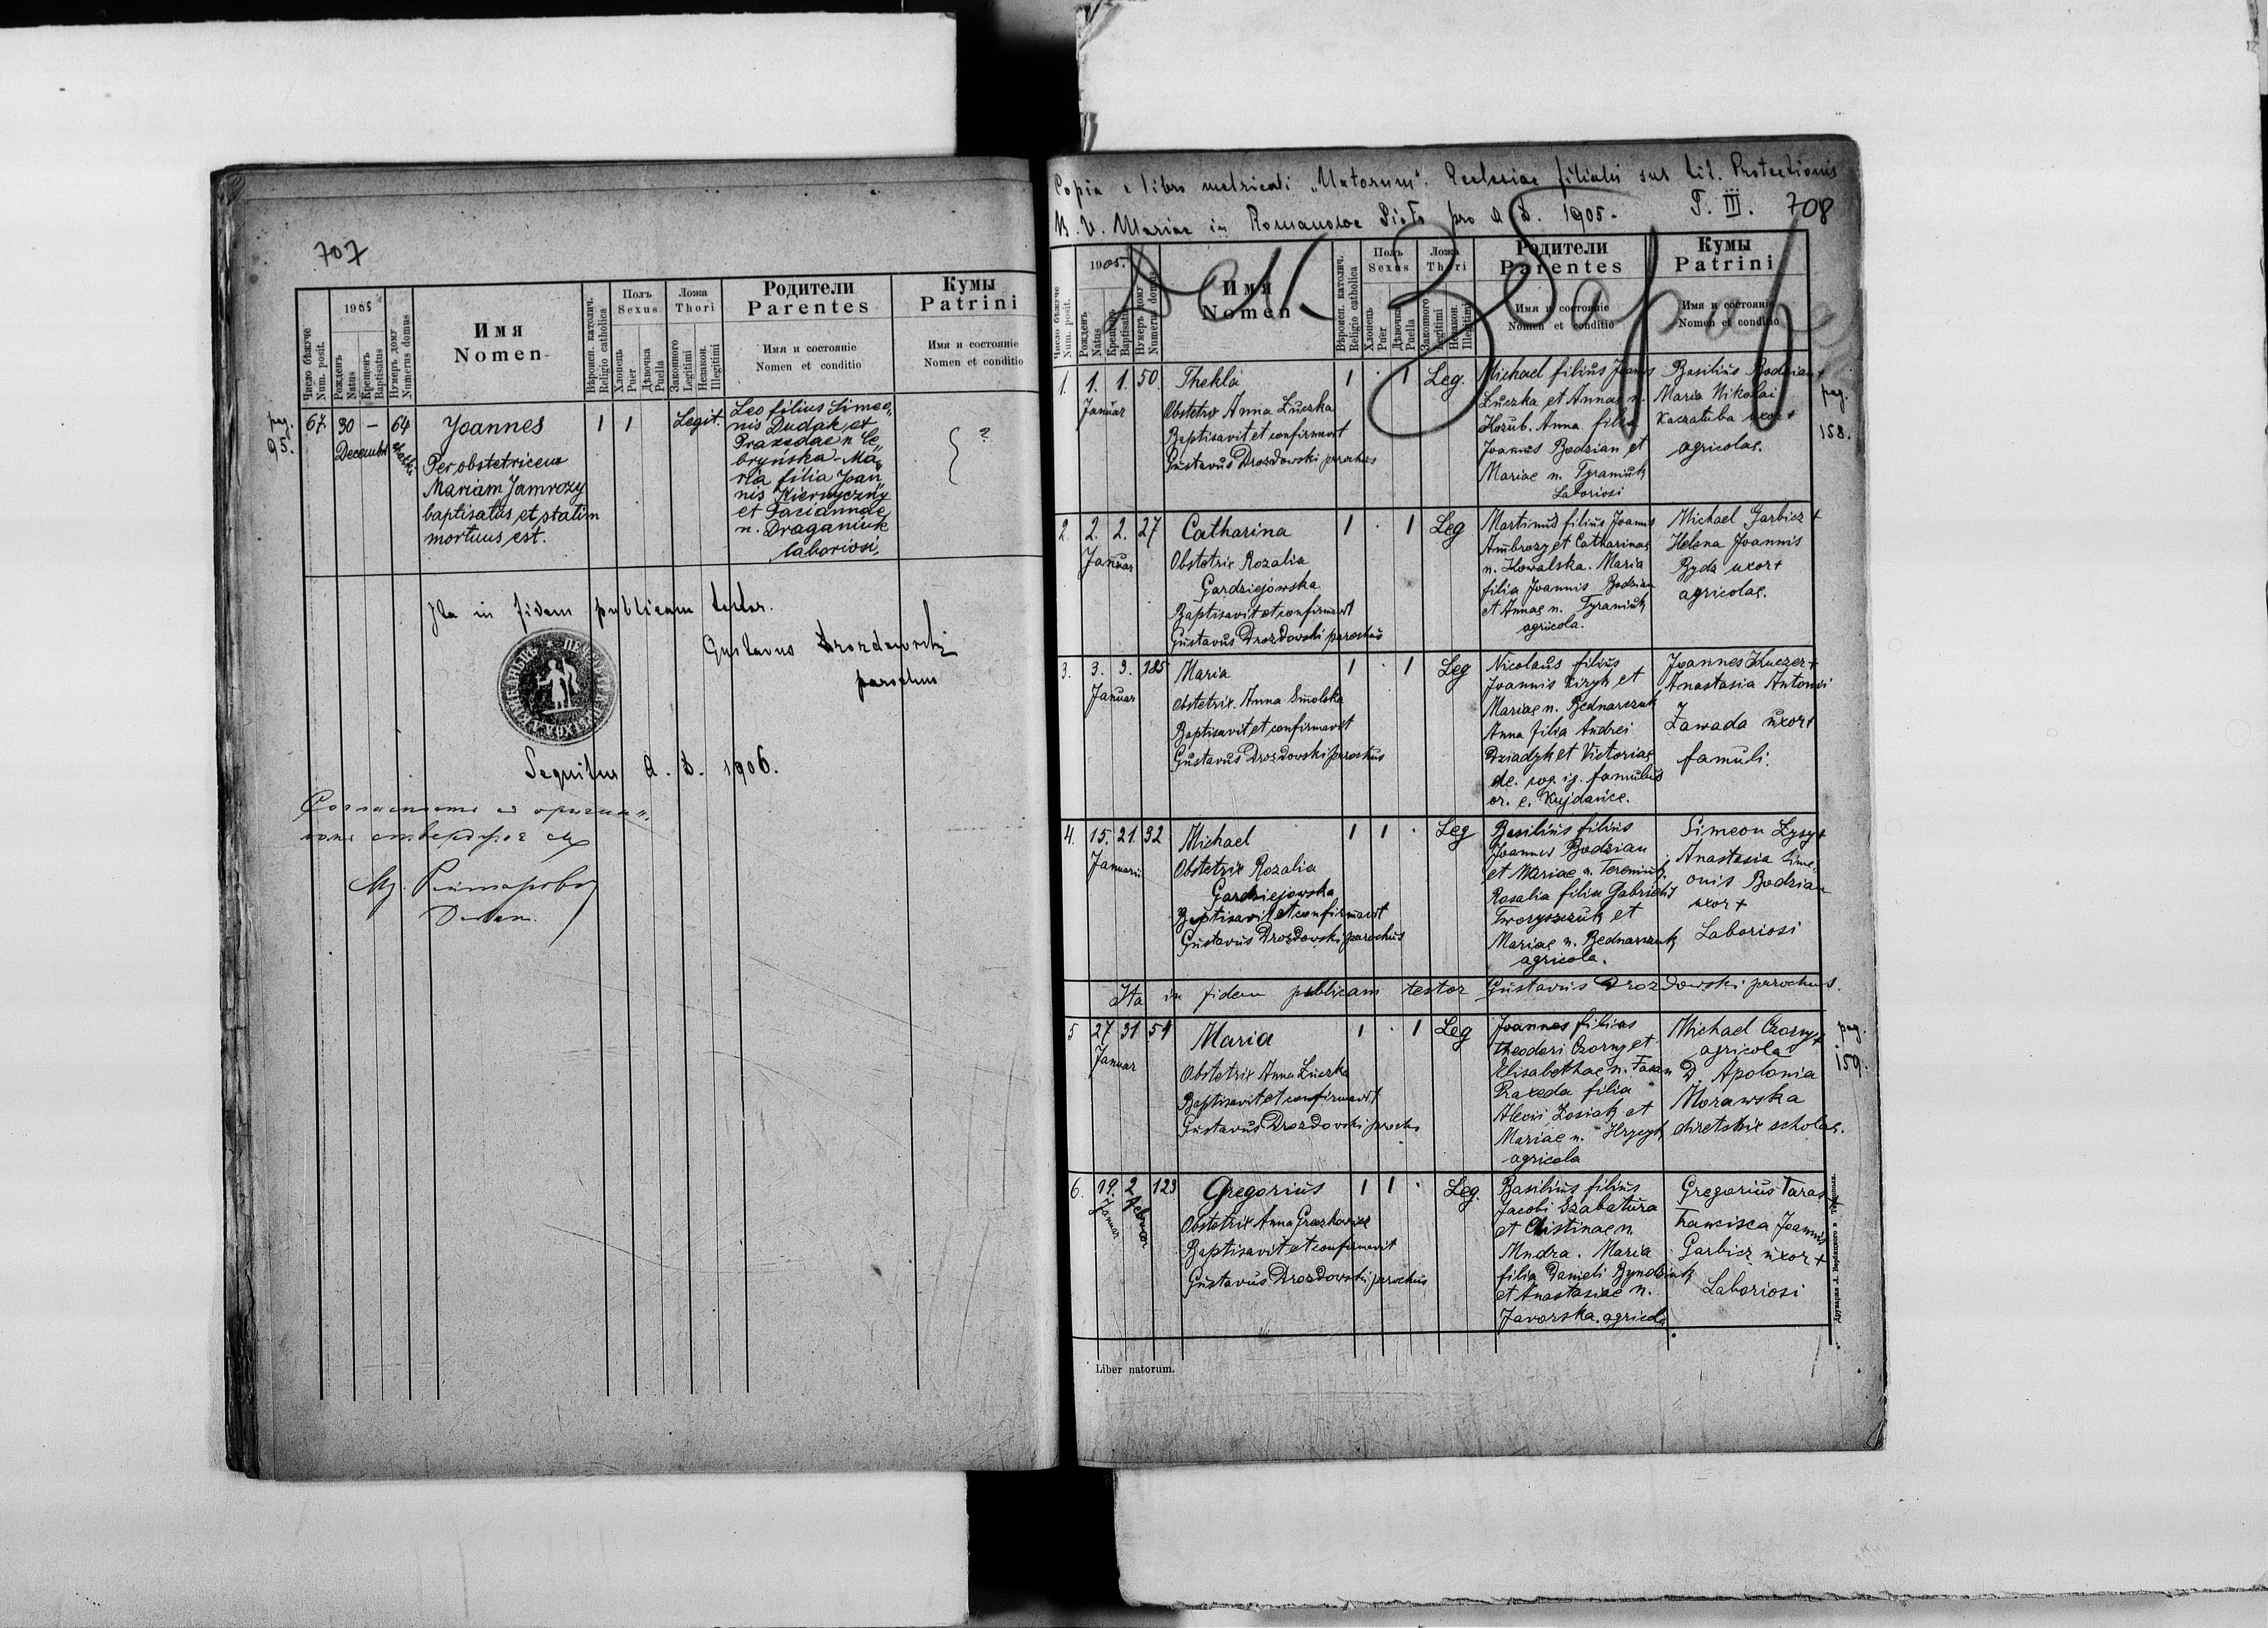 707
1905
Число бѣжуче
Num. posit.
Рожденъ
Natus
Крещенъ
Baptisatus
Нумеръ дому
Numerus domus
Имя
Nomen
Вѣроисп. католич.
Religio catholica
Полъ
Sexus
Хлопець
Puer
Дѣвочка
Puella
Ложа
Thori
Законного
Legitimi
Незакон.
Illegitimi
Родители
Parentes
Имя и состояніе
Nomen et conditio
Кумы
Patrini
Имя и состояніе
Nomen et conditio
pag.
95.
67 30 — 64
Decembr
Joannes
Per obstetricem
Mariam Jamrozy
baptisatus et statim
mortuus est.
1 1
Legit.
Leo filius Simeo„
nis Dudak et
Praxedae n Ce„
bryńska - Ma„
ria filia Joan„
nis Kiernyczny
et Parianna
n. Draganiuk
laboriosi.
?
Ita in fidem publicam testor.
Gustavus Drozdowski
parochus
Sequitur A. D. 1906.
Copia e libro metricali „Natorum". Ecclesiae filialis sub tit. Protectionis
B. V. Mariae in pro A. D. 1905.
T. III. 708
1905.
Число бѣжуче
Num. posit.
Рожденъ
Natus
Крещенъ
Baptisatus
Нумеръ дому
Numerus domus
Имя
Nomen
Вѣроисп. католич.
Religio catholica
Полъ
Sexus
Хлопець
Puer
Дѣвочка
Puella
Ложа
Thori
Законного
Legitimi
Незакон.
Illegitimi
Родители
Parentes
Имя и состояніе
Nomen et conditio
Кумы
Patrini
Имя и состояніе
Nomen et conditio
1. 1. 1. 50.
Januar
Thekla
Obstetrix Anna Łuczka
Baptisavit et confirmavit
Gustavus Drozdowski parochus
1 · 1 Leg.
Michael filius Joannis
Łuczka et Annae n.
Kozub. Anna filia
Joannis Bodzian et
Mariae n. Tyraniuk
Laboriosi
Basilius Bodzian +
Maria Nikolai
Kaczatuba uxor +
agricolae.
pag.
158.
2. 2. 2. 27
Januar
Catharina
Obstetrix Rozalia
Gardziejowska
Baptisavit et confirmavit
Gustavus Drozdowski parochus
1 · 1 Leg
Martinus filius Joannis
Ambrozy et Catharinae
n. Kowalska. Maria
filia Joannis Bodzian
et Annae n. Tyraniuk
agricola.
Michael Garbicz +
Helena Joannis
Byda uxor +
agricolae.
3. 3. 3. 285
Januar
Maria
Obstetrix Anna Smolska
Baptisavit et confirmavit
Gustavus Drozdowski parochus
1 · 1 Leg
Nicolaus filius
Joannis Kizyk et
Mariae n. Bednarczuk
Anna filia Andrei
Dziadyk et Victoriae
de. famulus
or. e. Kujdańce.
Joannes Kuczer +
Anastasia Antonii
Zawada uxor +
famuli.
4. 15. 21. 32
Januarii
Michael
Obstetrix Rozalia
Gardziejowska
Baptisavit et confirmavit
Gustavus Drozdowski parochus
1 1 · Leg
Basilius filius
Joannis Bodzian
et Mariae n. Tereniuk
Rosalia filia Gabrielis
Tworyszczuk et
Mariae n. Bednarczuk
agricola.
Simeon Łysy +
Anastasia Sime„
onis Bodzian
uxor +
Laboriosi
Ita in fidem publicam testor Gustavus Drozdowski parochus.
5 27 31 54
Januar
Maria
Obstetrix Anna Łuczka
Baptisavit et confirmavit
Gustavus Drozdowski paroch
1 · 1 Leg
Joannes filius
Theodori Czorny et
Elisabethae n. Fasan
Praxeda filia
Alexii Łosiak et
Mariae n. Hrycyk
agricola
Michael Czorny +
agricola
D. Apolonia
Morawska
scholae.
pag.
159.
6. 19. 2 123
Januar Februar
Gregorius
Obstetrix Anna
Baptisavit et confirmavit
Gustavus Drozdowski parochus
1 1 · Leg.
Basilius filius
Jacobi Szabatura
et Christinae n.
Mudra. Maria
filia Danieli Byndziuk
et Anastasiae n.
Javorska. agricola
Gregorius Taras
Francisca Joannis
Garbicz uxor +
Laboriosi
Liber natorum.